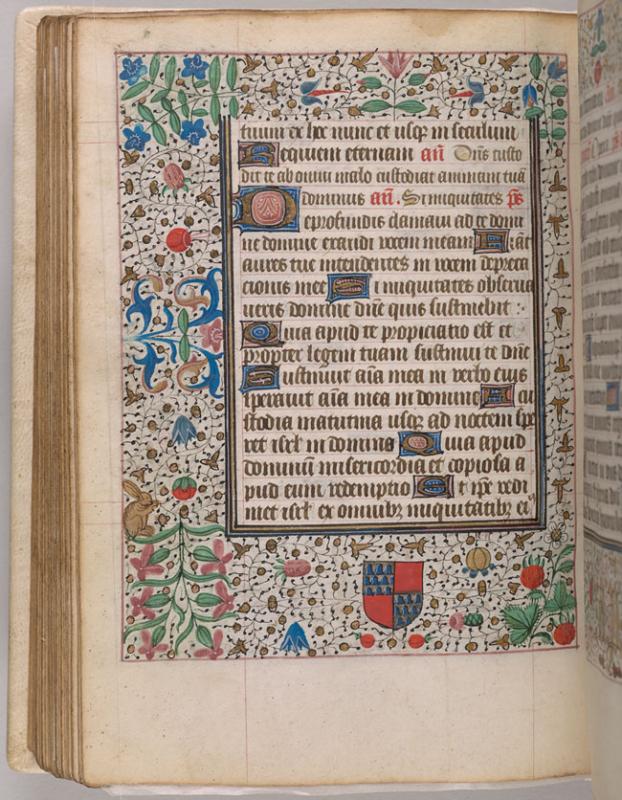 tuum ex hoc nunc et usq; in seculum
Requiem eternam añ Dns custo
dit te ab omni malo custodiat animam tuā
dominus añ. Si iniquitates p̄s
De profundis clamaui ad te domi
ne domine exaudi uocem meam Fiāt
aures tue intendentes in uocem depreca
cionis mee Si iniquitates obserua
ueris domine dn̄e quis sustinebit :
Quia apud te propiciatio est et
propter legem tuam sustinui te dn̄e
Sustinuit aīa mea in uerbo eius
sperauit aīa mea in domino A cu
stodia matutina usq; ad noctem spe
ret isrl' in domino Quia apud
dominū misericordia et copiosa a
pud eum redemptio Et ipē redi
met isrl' ex omnibz iniquitatibz ei9